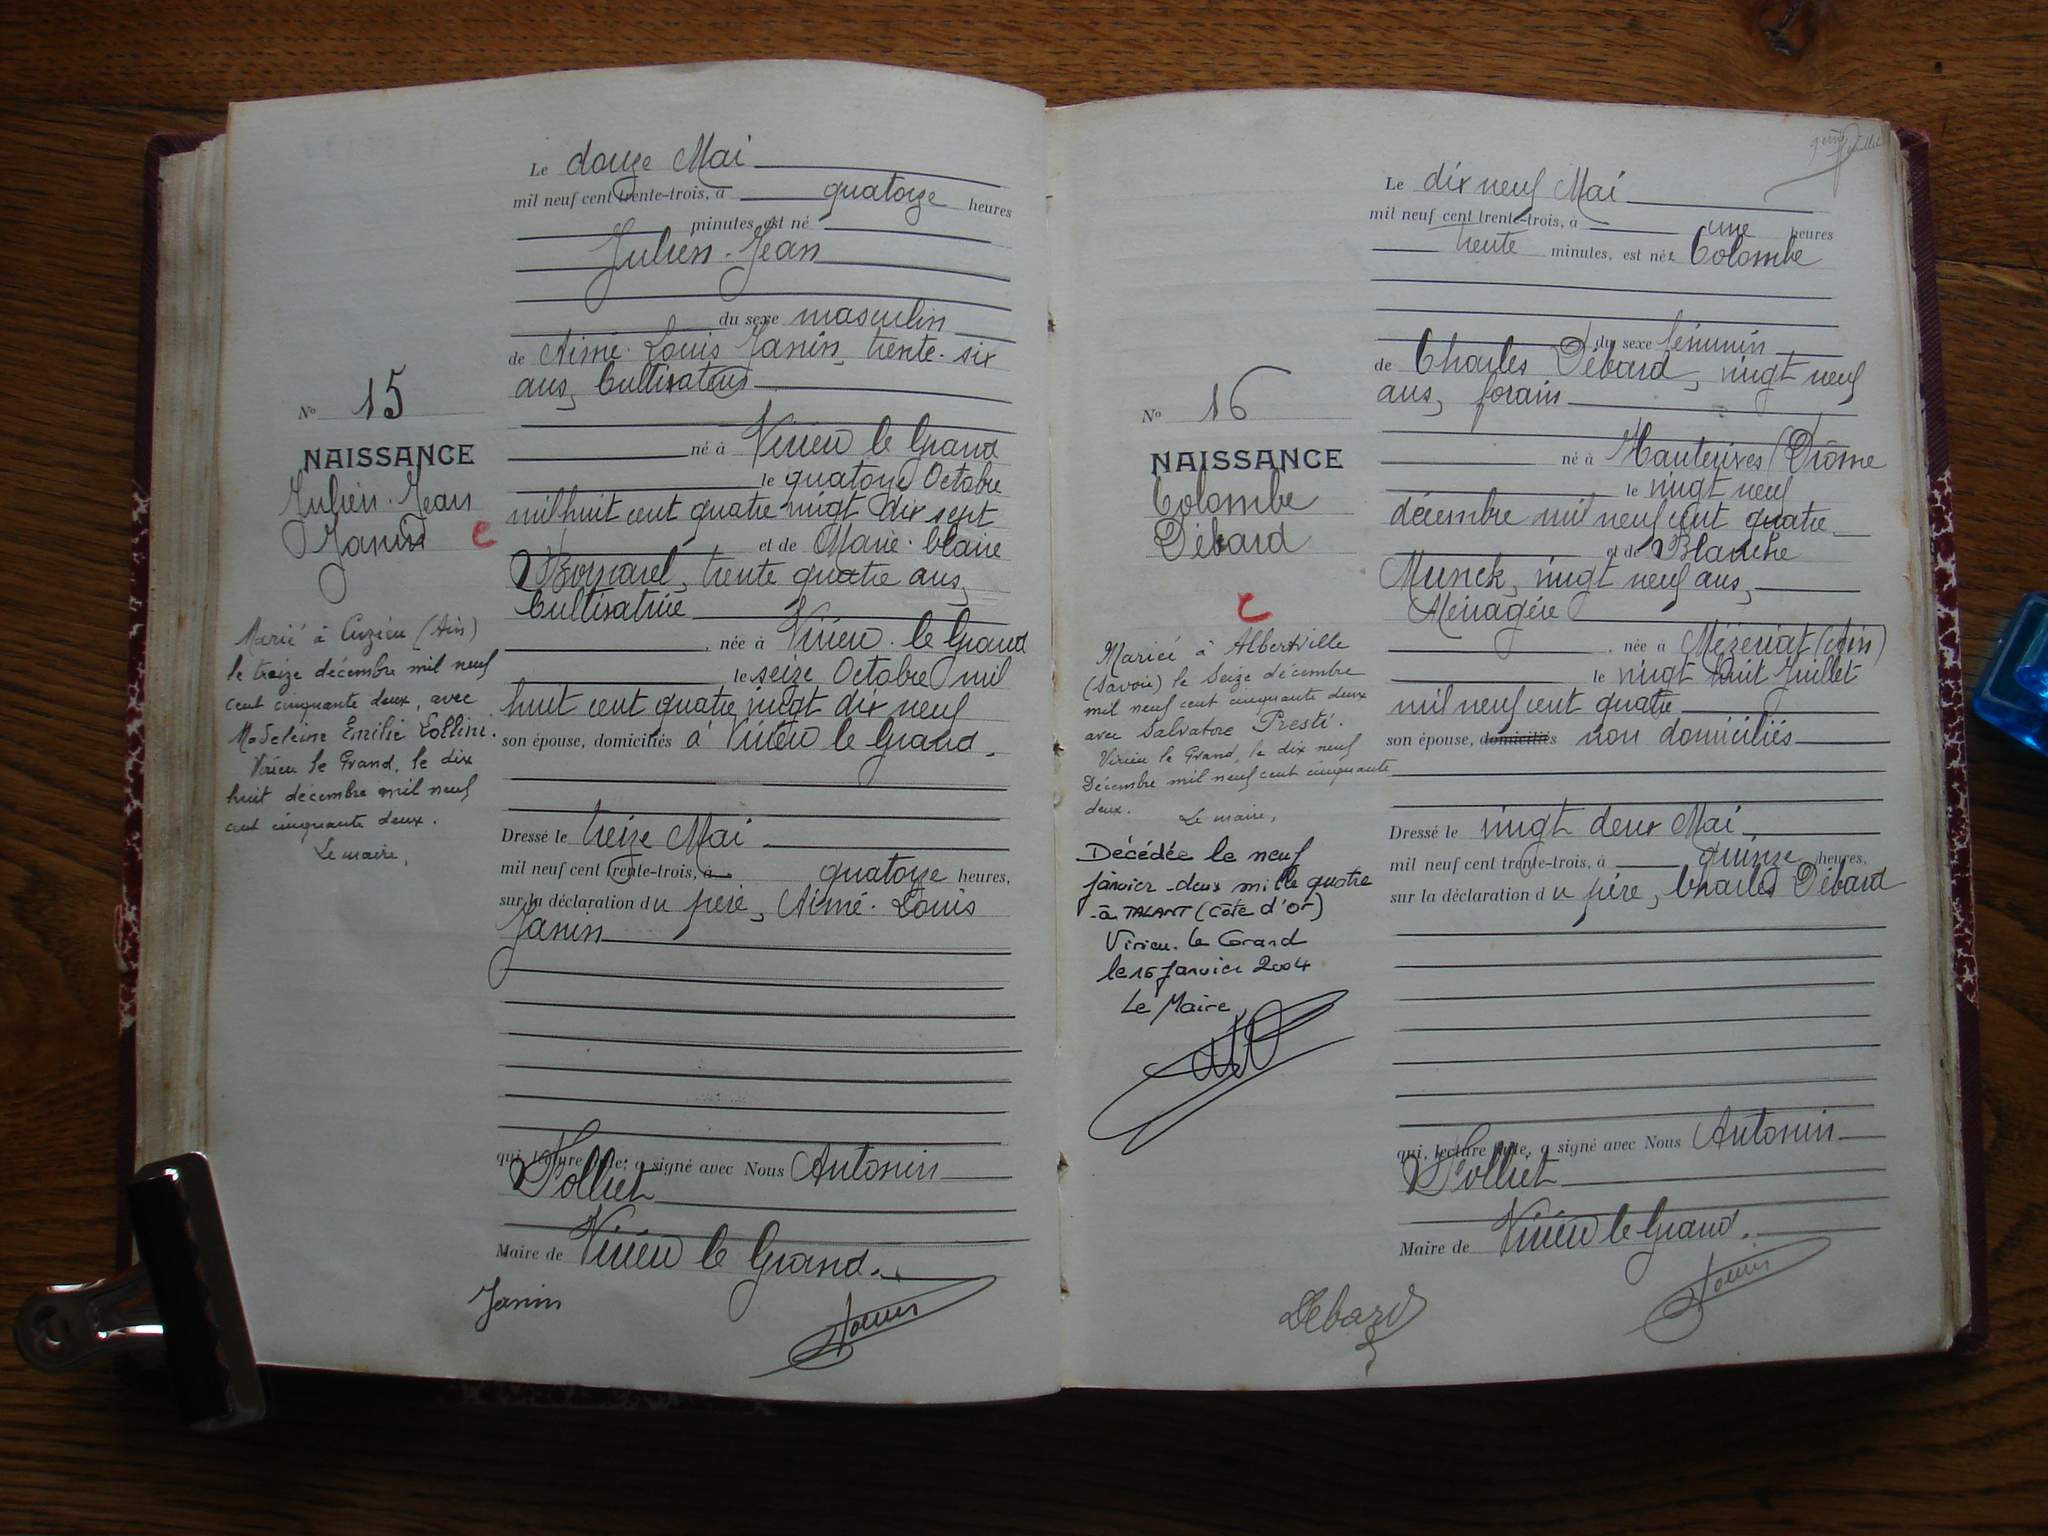 Le douze Mai
mil neuf cent trente-trois, à quatorze heures
minutes est né
Julien-Jean
du sexe masculin
de Aimé-Louis Janin, trente-six
ans, Cultivateur
né à Virieu le Grand
le quatorze Octobre
mil huit cent quatre vingt dix sept
et de Marie-Claire
trente quatre ans,
Cultivatrice
née à Virieu-le Grand
le seize Octobre mil
huit cent quatre vingt dix neuf
son épouse, domiciliés à Virieu le Grand.
Dressé le treize Mai
mil neuf cent trente-trois, à quatorze heures,
sur la déclaration du père, Aimé-Louis
Janin
qui, lecture faite, a signé avec Nous Antonin
Polliet
Maire de Virieu le Grand.
Janin
No 15
NAISSANCE
Julien-Jean
Janin
C
Marié à Cuzieu (Ain)
le treize décembre mil neuf
cent cinquante deux, avec
Madeleine Emilie
Virieu le Grand, le dix
huit décembre mil neuf
cent cinquante deux.
Le maire,
Le dix neuf Mai
mil neuf cent trente-trois, à une heures
trente minutes, est née Colombe
du sexe féminin
de Charles Débard, vingt neuf
ans, forain
né à Hauterives (Drôme
le vingt neuf
décembre mil neuf cent quatre
et de Blanche
Munck, vingt neuf ans,
Ménagère
née à Mézeriat (Ain)
le vingt huit Juillet
mil neuf cent quatre
son épouse, domiciliés non domiciliés
Dressé le vingt deux Mai
mil neuf cent trente-trois, à quinze heures,
sur la déclaration du père, Charles Débard
qui, lecture faite, a signé avec Nous Antonin
Polliet
Maire de Virieu le Grand.
Débard
No 16
NAISSANCE
Colombe
Débard
C
Mariée à Albertville
(Savoie) le Seize décembre
mil neuf cent cinquante deux
avec Salvatore Presti.
Virieu le Grand, le dix neuf
Décembre mil neuf cent cinquante
deux.
Le maire,
Décédée le neuf
janvier deux mille quatre
à TALANT (Côte d'or)
Virieu-le Grand
le 16 Janvier 2004
Le Maire